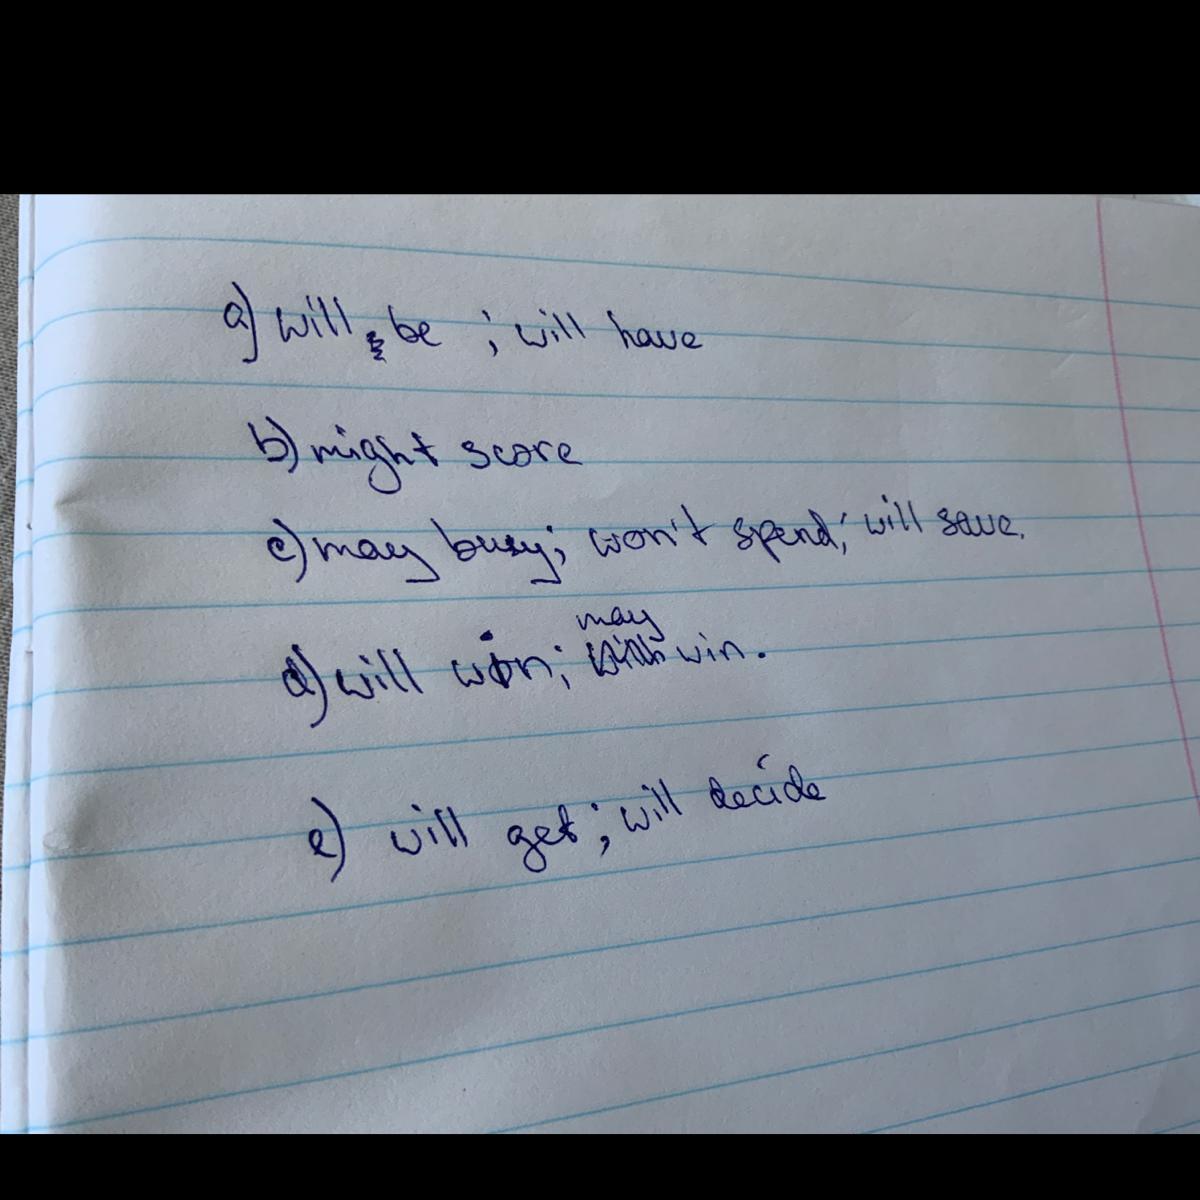 a) will be ; will have
b) might score
c) may busy; won't spend; will save.
may
d) will win; win.
e) will get; will decide